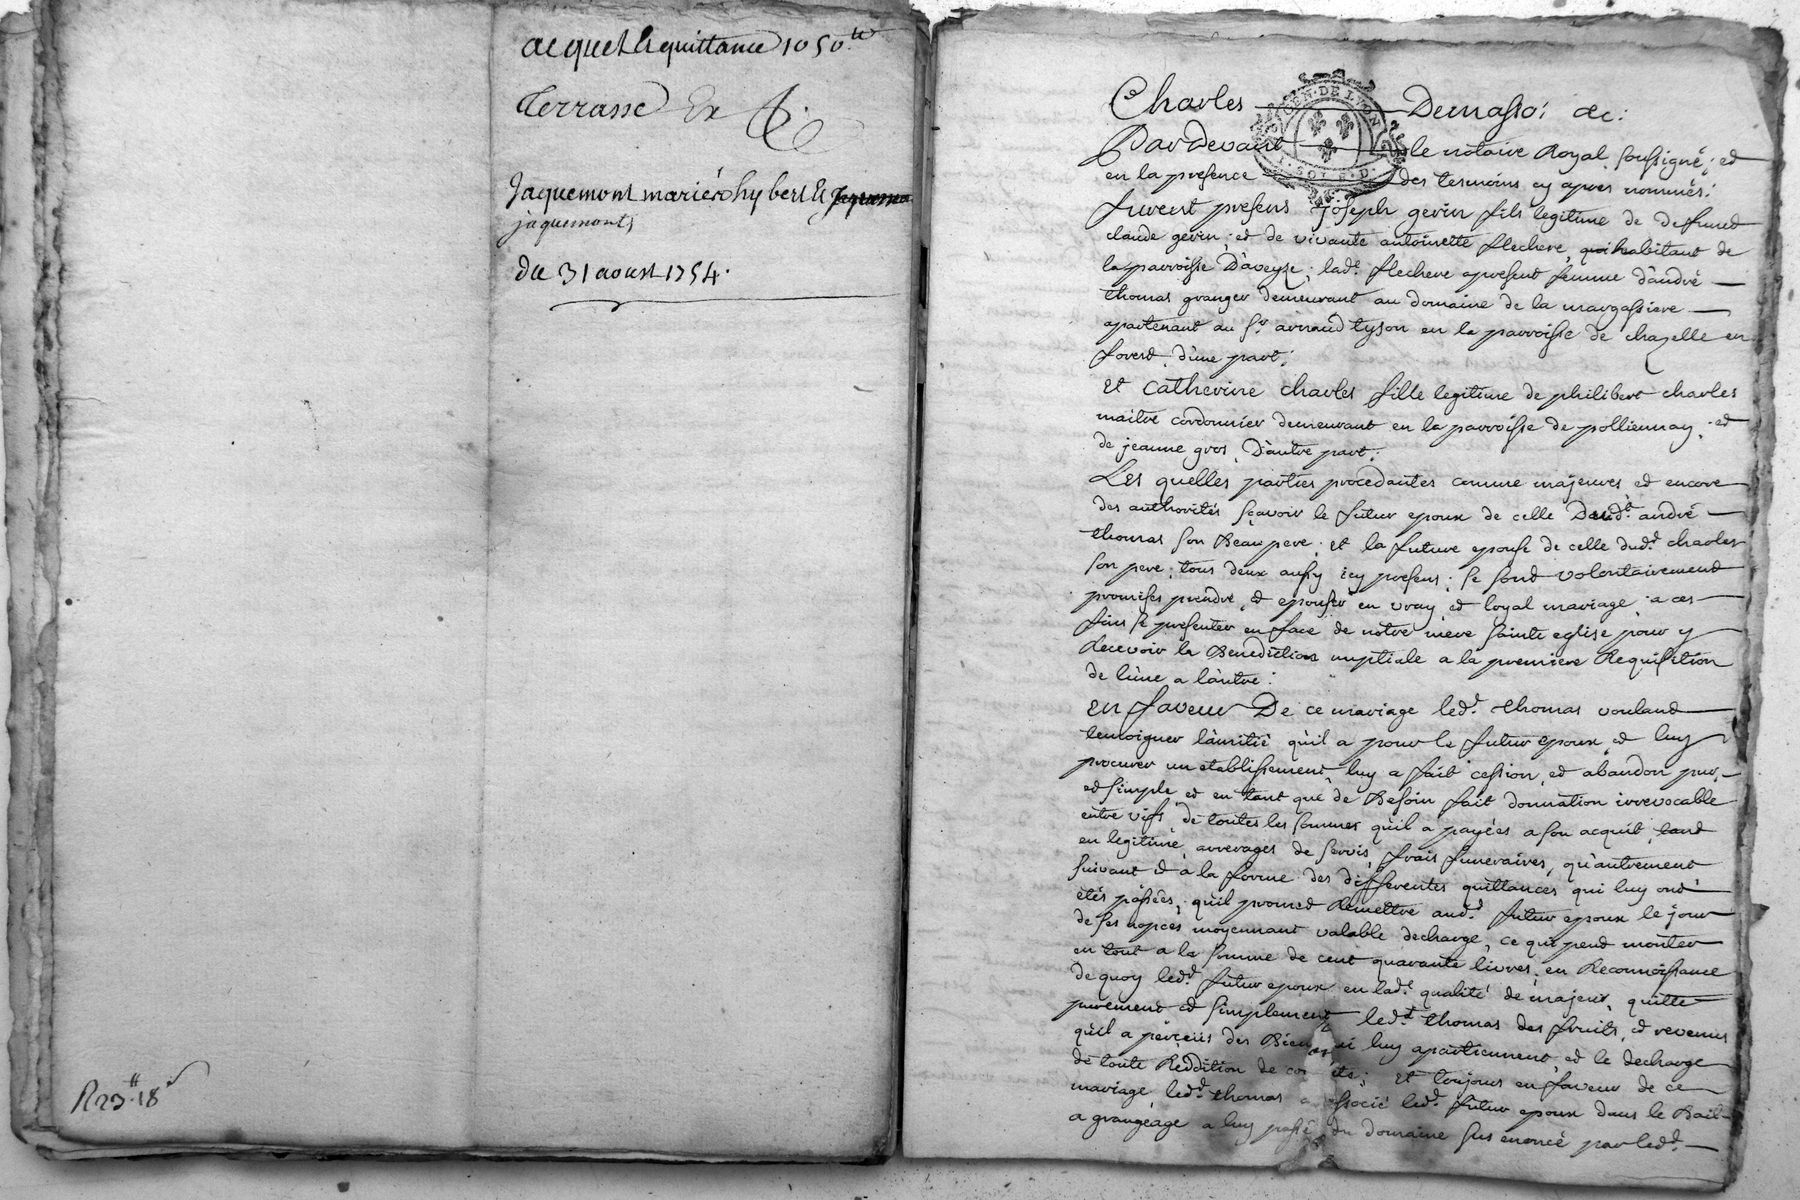 acquet & quittance 1050ᵗᵗ
Terrasse Ex
Jaquemont mariés hybert &
jaquemonts
du 31 aoust 1754.
R 23ᵗᵗ 18ˢ
GEN · DE LYON
Charles Demasso: &c:
Pardevant le notaire Royal soussigné; et
en la presence des tesmoins cy apres nommés:
furent presens Joseph gerin fils legitime de deffunct
claude gerin; et de vivante antoinette flechere, habitant de
la parroisse D'aveyze; lade. flechere apresent femme d'andré
thomas granger demeurant au domaine de la margassiere
apartenant au sr. arnaud tyson en la parroisse de chazelle en
forest d'une part;
Et Catherine charles fille legitime de philibert charles
maitre cordonnier demeurant en la parroisse de polliennay, et
de jeanne gros, D'autre part;
Les quelles parties procedantes comme majeures et encore
des authorités sçavoir le futur epoux de celle Dudt. andré
thomas son Beau pere; et la future epouse de celle dudt. charles
son pere; tous deux aussy icy presens; se sont volontairement
promises prendre, et epouser en vray et loyal mariage, a ces
fins se presenter en face de notre mere sainte eglise pour y
Recevoir la Benediction nuptiale a la premiere Requisition
de l'une a l'autre:
en faveur De ce mariage ledt. thomas voulant
temoigner l'amitié qu'il a pour le futur epoux, et luy
procurer un etablissement, luy a fait cession, et abandon pur,
et simple et en tant que de Besoin fait donnation irrevocable
entre vifs de toutes les sommes qu'il a payées a son acquit, tant
en legitime, arrerages de servis, frais funeraires, qu'autrement
suivant et a la forme des differentes quittances qui luy ont
étés passées, qu'il promet Remettre audt. futur epoux le jour
de ses nopces moyennant valable decharge, ce qui peut monter
en tout a la somme de cent quarante livres; en Reconnoissance
de quoy ledt. futur epoux en lade. qualité de majeur, quitte
purement et simplement ledt. thomas des fruits, et revenus
qu'il a perceüs des Biens luy apartiennent, et le decharge
de toute Reddition de; Et toujours en faveur de ce
mariage, ledt. thomas a associé ledt. futur epoux dans le Bail
a grangeage a luy passé du domaine sus enoncé par ledt.